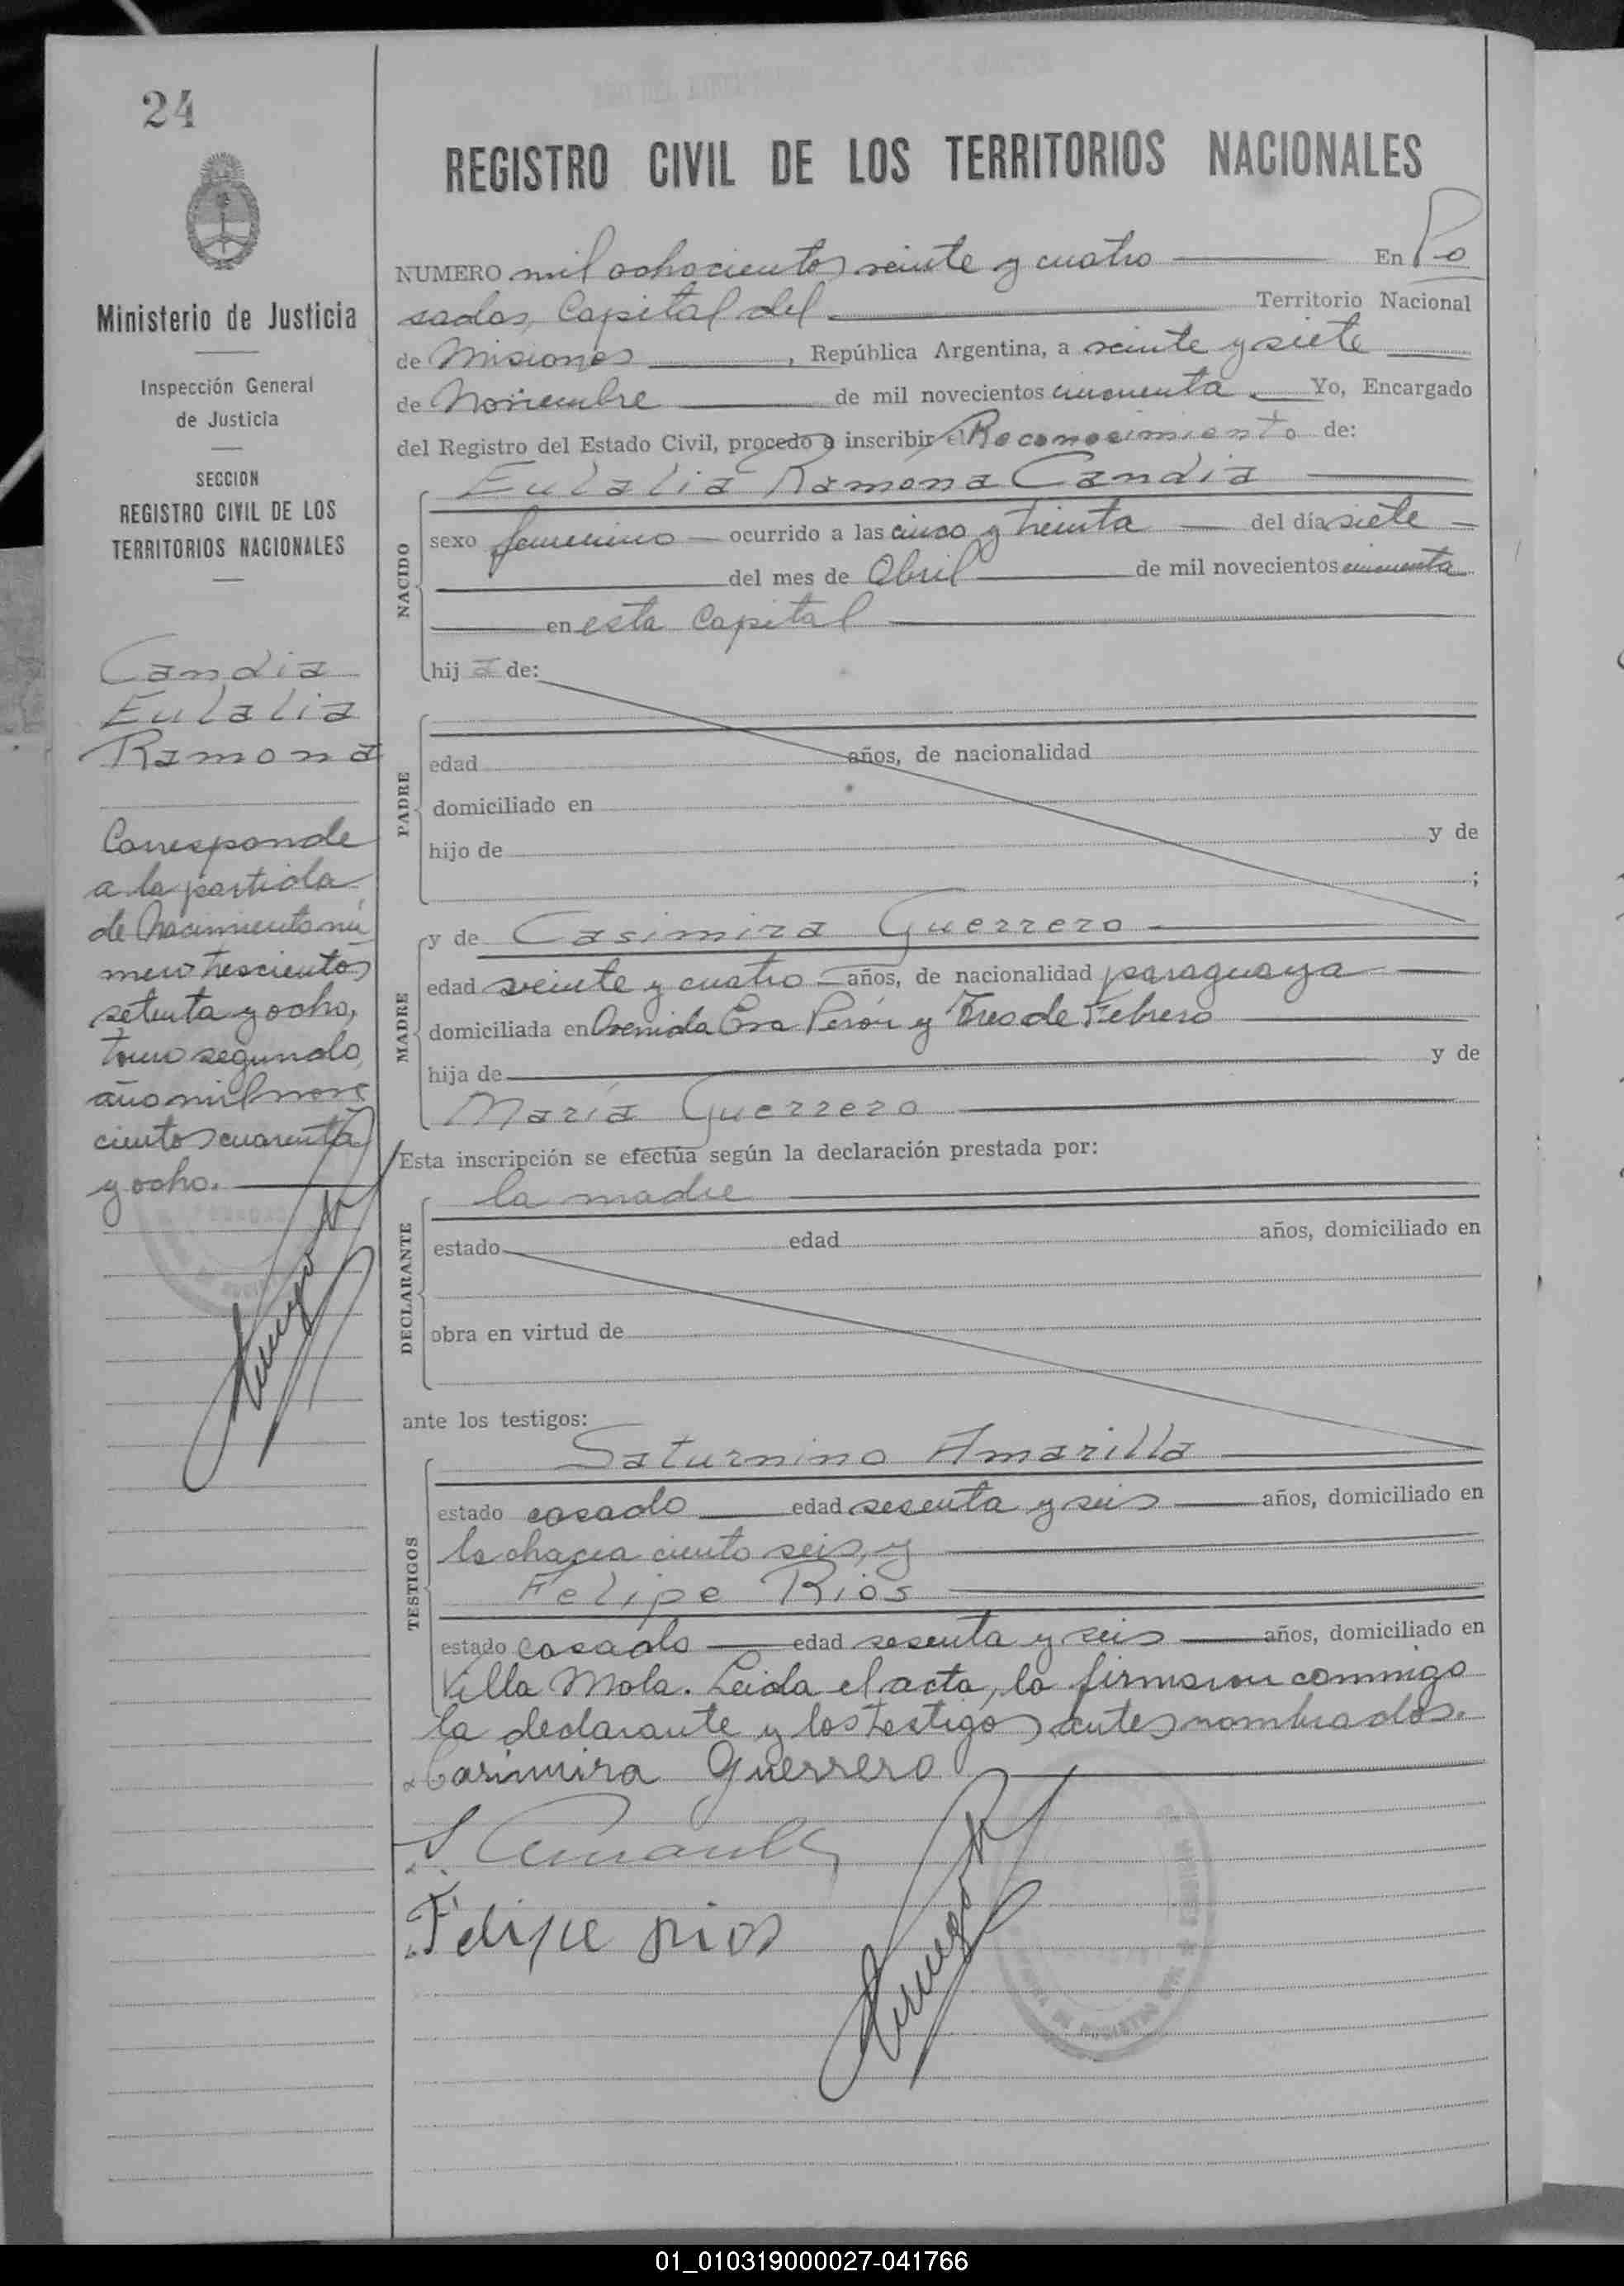 24
Ministerio de Justicia
Inspección General
de Justicia
SECCION
REGISTRO CIVIL DE LOS
TERRITORIOS NACIONALES
Candia
Eulalia
Ramona
Corresponde
a la partida
de Nacimiento nú
mero trescientos
setenta y ocho,
tomo segundo,
año mil nove
cientos cuarenta
y ocho.
REGISTRO CIVIL DE LOS TERRITORIOS NACIONALES
NUMERO mil ochocientos veinte y cuatro En Po
sadas, Capital del Territorio Nacional
de Misiones, República Argentina, a veinte y siete
de Noviembre de mil novecientos cincuenta Yo, Encargado
del Registro del Estado Civil, procedo a inscribir el Reconocimiento de:
Eulalia Ramona Candia
NACIDO
sexo femenino ocurrido a las cinco y treinta del día siete
del mes de Abril de mil novecientos cincuenta
en esta Capital
hij a de:
PADRE
edad años, de nacionalidad
domiciliado en
hijo de y de
;
y de Casimira Guerrero
MADRE
edad veinte y cuatro años, de nacionalidad paraguaya
domiciliada en Avenida Eva Perón y Tres de Febrero
hija de y de
María Guerrero
Esta inscripción se efectúa según la declaración prestada por:
la madre
DECLARANTE
estado edad años, domiciliado en
obra en virtud de
ante los testigos:
Saturnino Amarilla
TESTIGOS
estado casado edad sesenta y seis años, domiciliado en
la chacra ciento seis, y
Felipe Rios
estado casado edad sesenta y seis años, domiciliado en
Villa Mola. Leida el acta, la firmaron conmigo
la declarante y los testigos antes nombrados.
Casimira Guerrero
S. Amarilla
Felipe rios
01_010319000027-041766